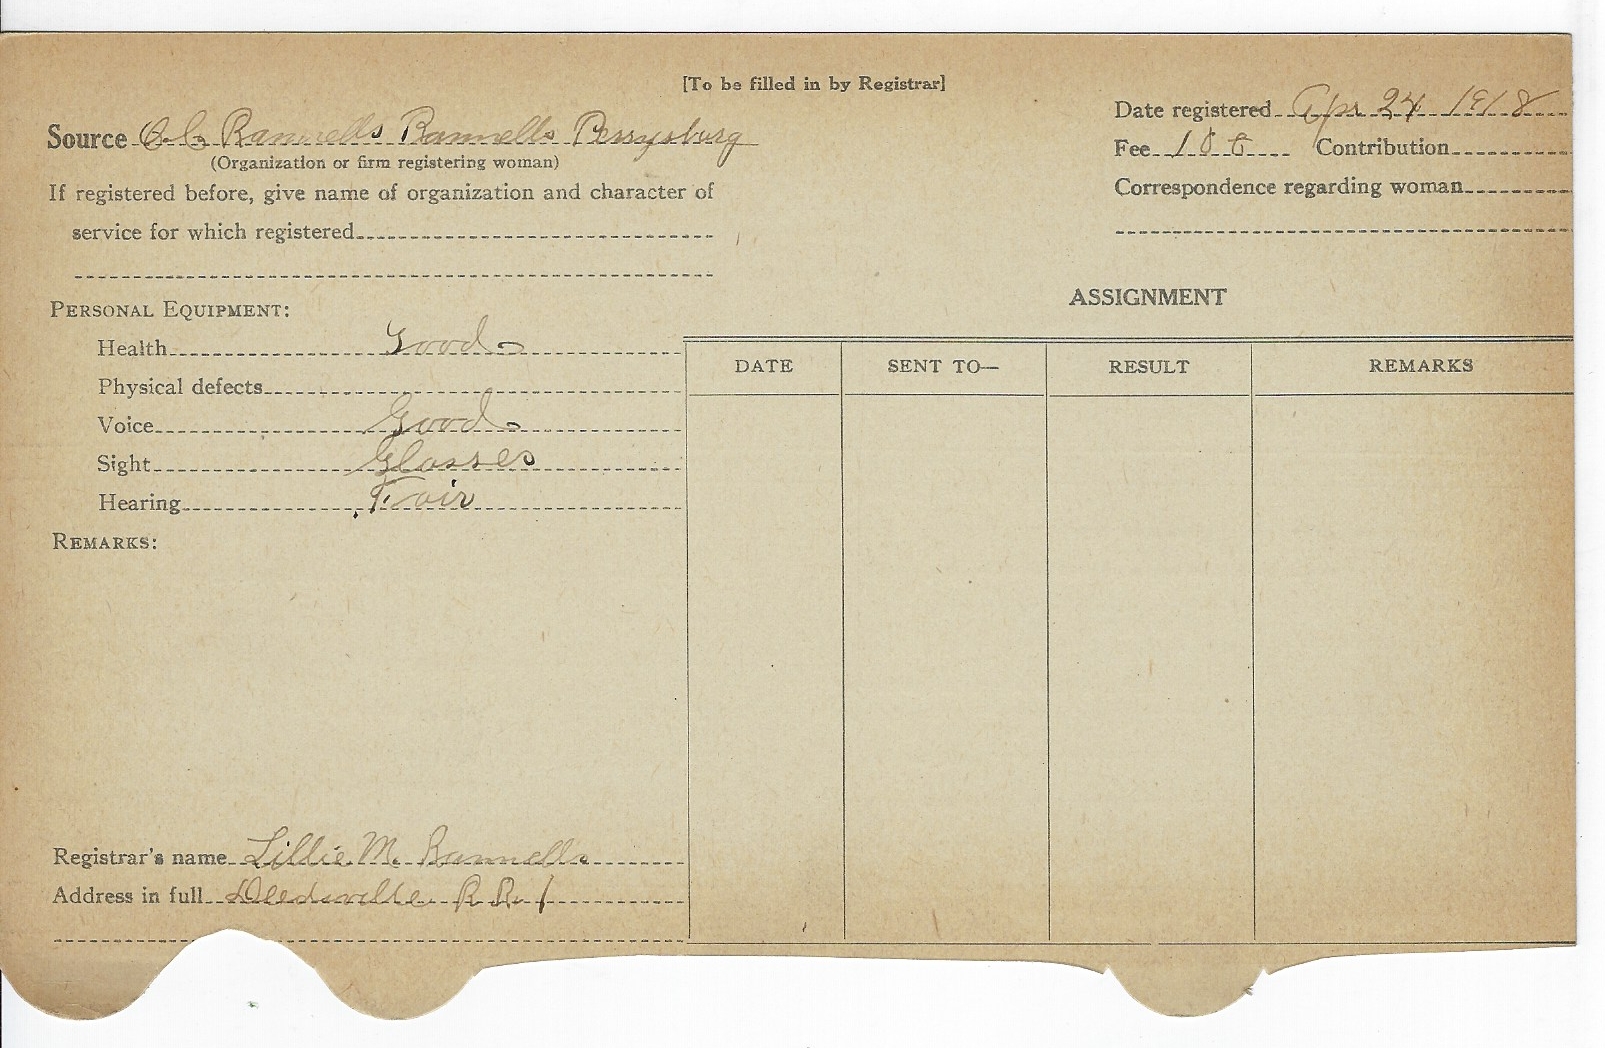 [To be filled in by Registrar]
Date registered Apr 24 1918
Source C.C. Rannells Rannells Perrysburg
(Organization or firm registering woman)
Fee 10¢ Contribution
If registered before, give name of organization and character of
Correspondence regarding woman
service for which registered
ASSIGNMENT
PERSONAL EQUIPMENT:
Health Good
DATE SENT TO— RESULT REMARKS
Physical defects
Voice Good
Sight Glasses
Hearing Fair
REMARKS:
Registrar's name Lillie M. Rannells
Address in full Deedsville R R 1